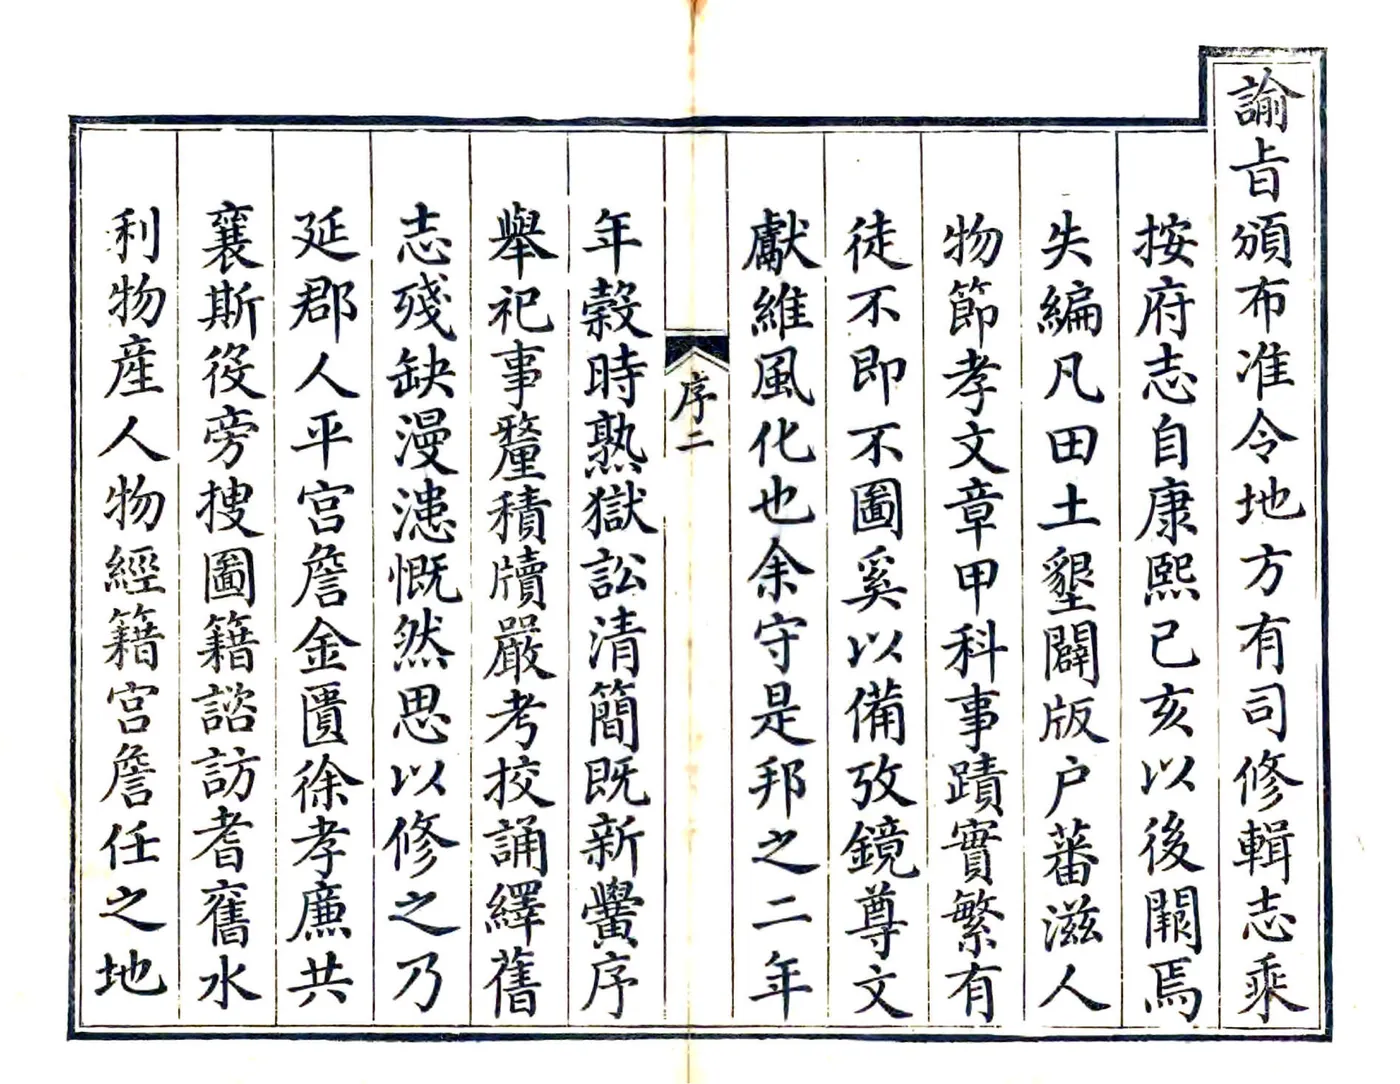 諭旨頒布准令地方有司修輯志乘
按府志自康熙己亥以後闕焉
失編凡田土墾闢版户蕃滋人
物節孝文章甲科事蹟實繁有
徒不即不圖奚以備攷鏡尊文
獻維風化也余守是邦之二年
序二
年穀時熟獄訟清簡既新黌序
舉祀事釐積牘嚴考校誦繹舊
志殘缺漫漶慨然思以修之乃
延郡人平宫詹金匱徐孝廉共
襄斯役旁搜圖籍諮訪耆舊水
利物產人物經籍宫詹任之地